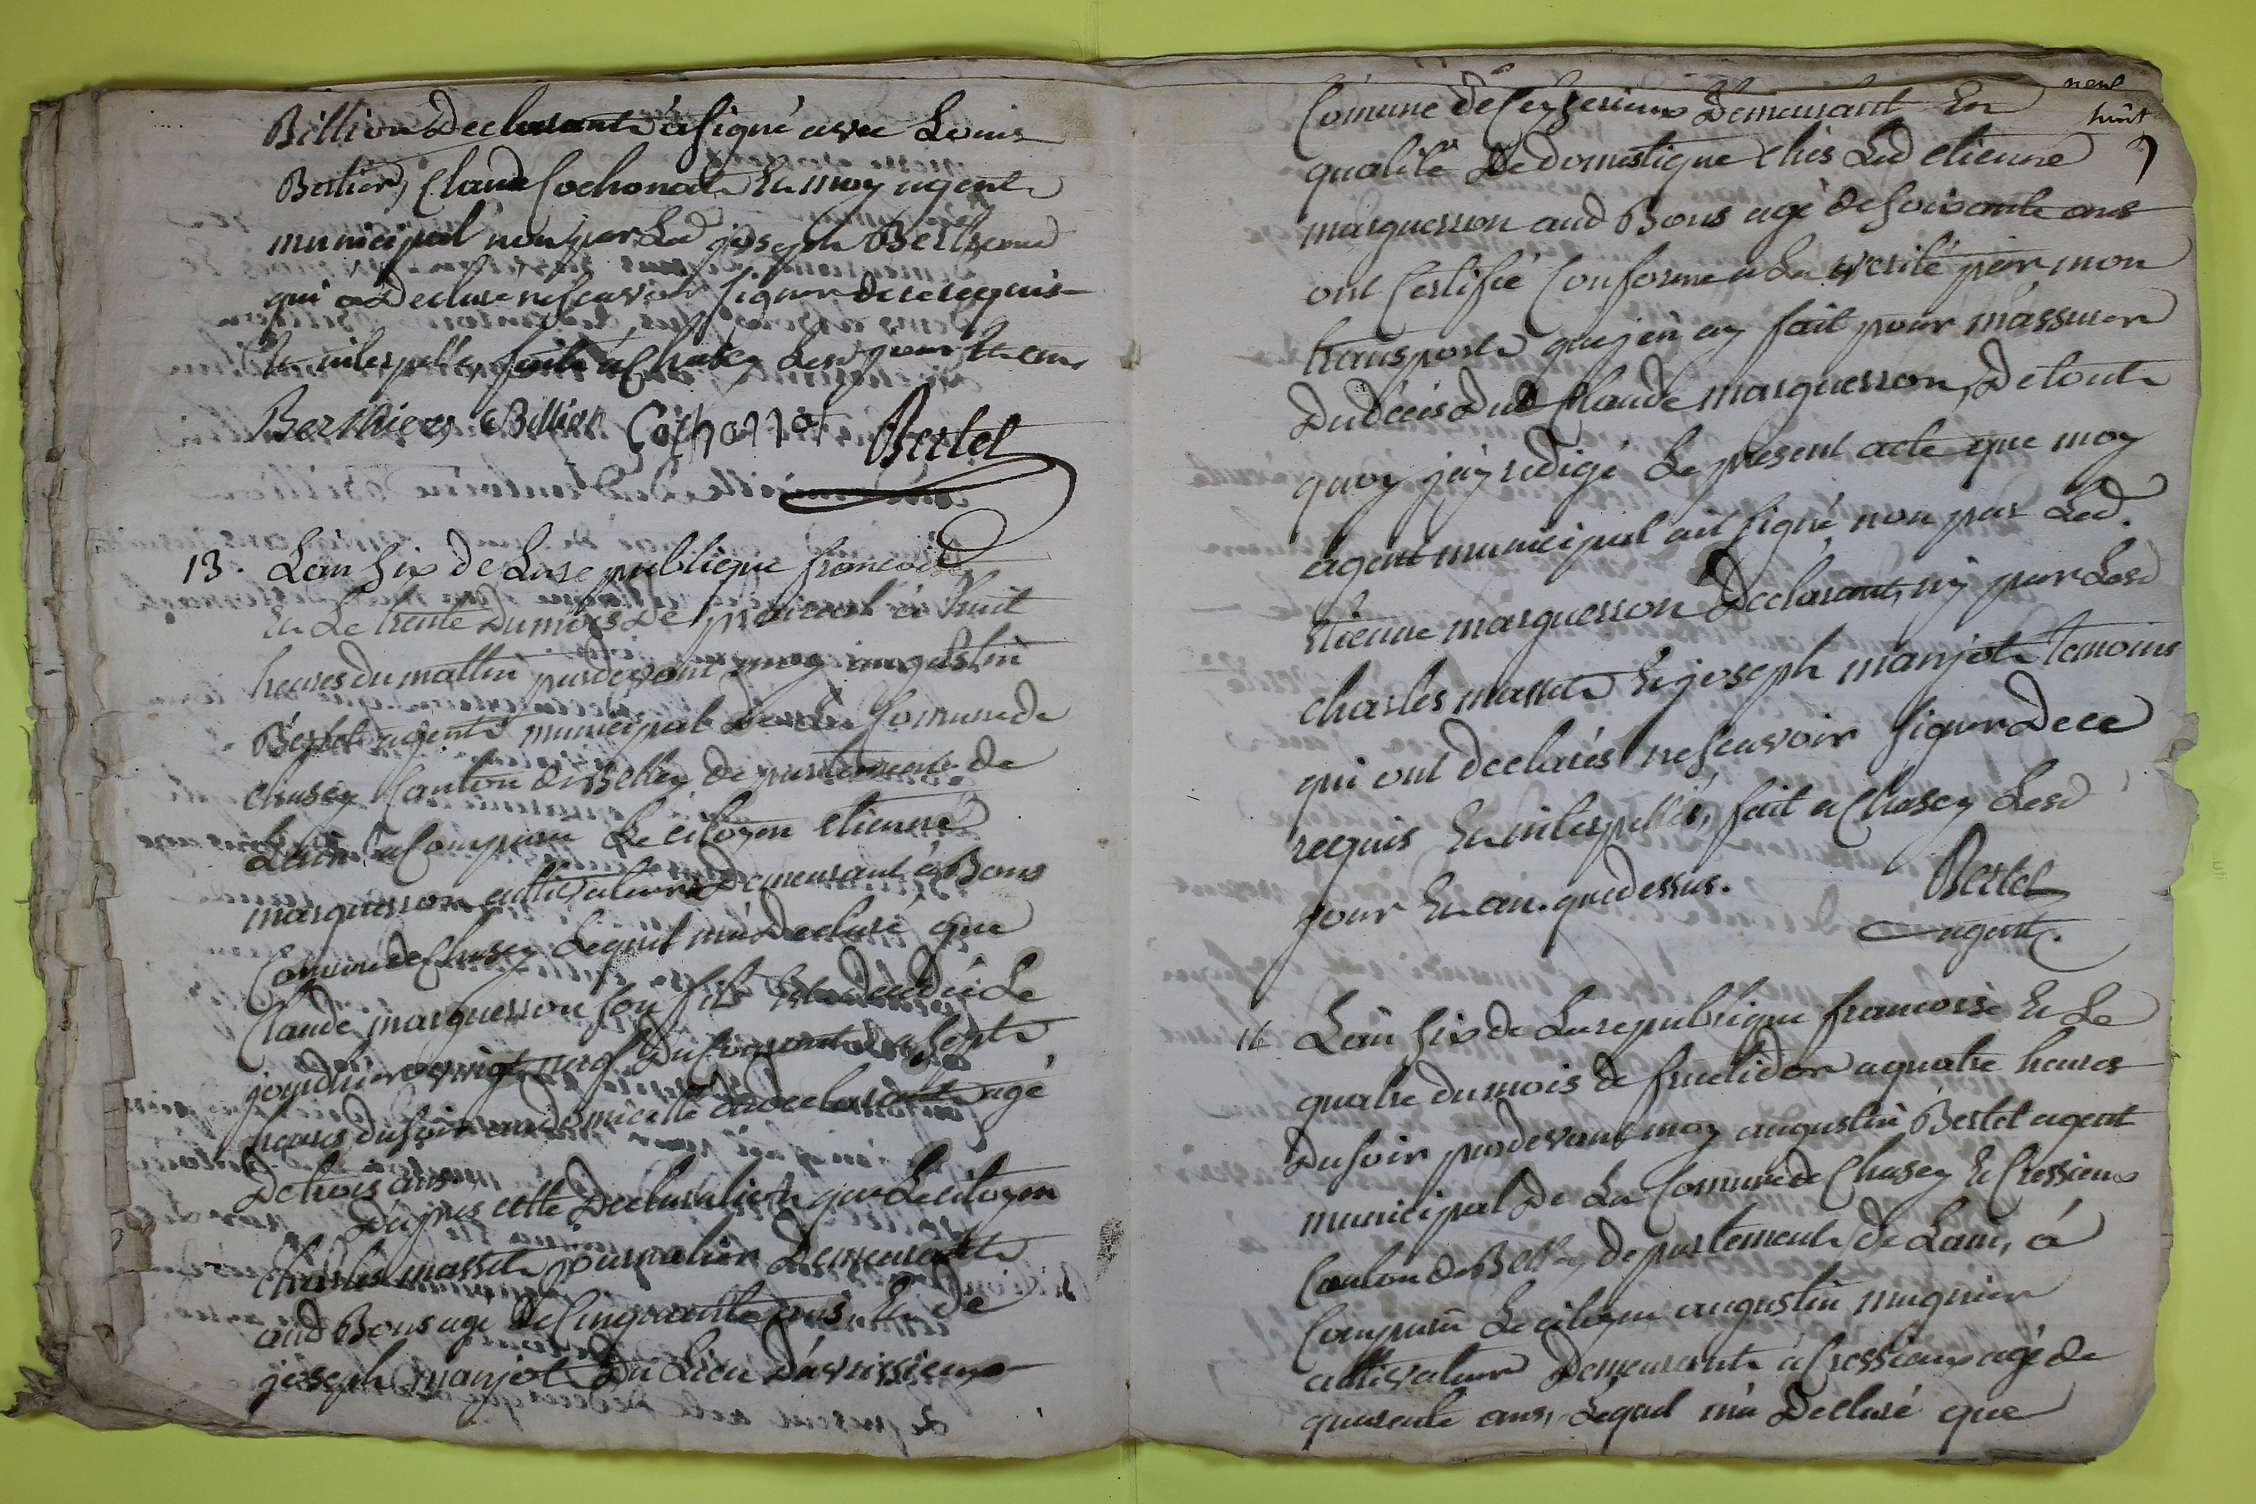 Billion declarant à signé avec Louis
Bertier, Claude Cochonat et moy agent
municipal non par Led joseph Bertrand
qui a declare ne scavoir signer de ce requis
et interpellé, fait à Chasey Lesd jour et an
Berthier Billion Cochonat Bertet
13. Lan six de La republique francoise
et Le trente du mois de prairial à huit
heures du mattin pardevant moy augustin
Bertet agent municipal de La Commune de
chasey Canton de Belley departement de
Lain a Comparu Le citoyen etienne
marquerron cultivateur demeurant à Bons
Comune de Chasey Lequel m'a declaré que
Claude marquerron son fils est decedé Le
jourdhier vingt neuf du courant a sept
heures du soir au domicille du declarant agé
de trois ans
Dapres cette declaration que Le citoyen
Charles massit journalier demeurant
aud Bons agé de Cinquante ans, et de
joseph manjot du Lieu d'avrissieux
neuf
huit
9
Comune de Ceyzerieux demeurant en
qualité de domestique chés Led etienne
marquerron aud Bons agé de soixante ans
ont Certifié Conforme a La verité par mon
transport que jen ay fait pour m'assurer
du décès dud Claude marquerron, de tout
quoy j'ay redigé Le present acte que moy
agent municipal ait signé, non par Led.
Etienne marquerron declarant, ny par Lesd
charles massit et joseph manjot temoins
qui ont declarés ne scavoir signer de ce
requis et interpellés, fait a Chasey Lesd
jour et an. que dessus. Bertet
agent.
14 Lan six de La republique francoise et Le
quatre du mois de fructidor a quatre heures
du soir pardevant moy augustin Bertet agent
municipal de La Comune de Chasey et Cressieux
Canton de Belley departement de Lain, à
Comparu Le citoyen augustin mugnier
cultivateur demeurant à Cressieux agé de
quarente ans, Lequel m'a declaré que